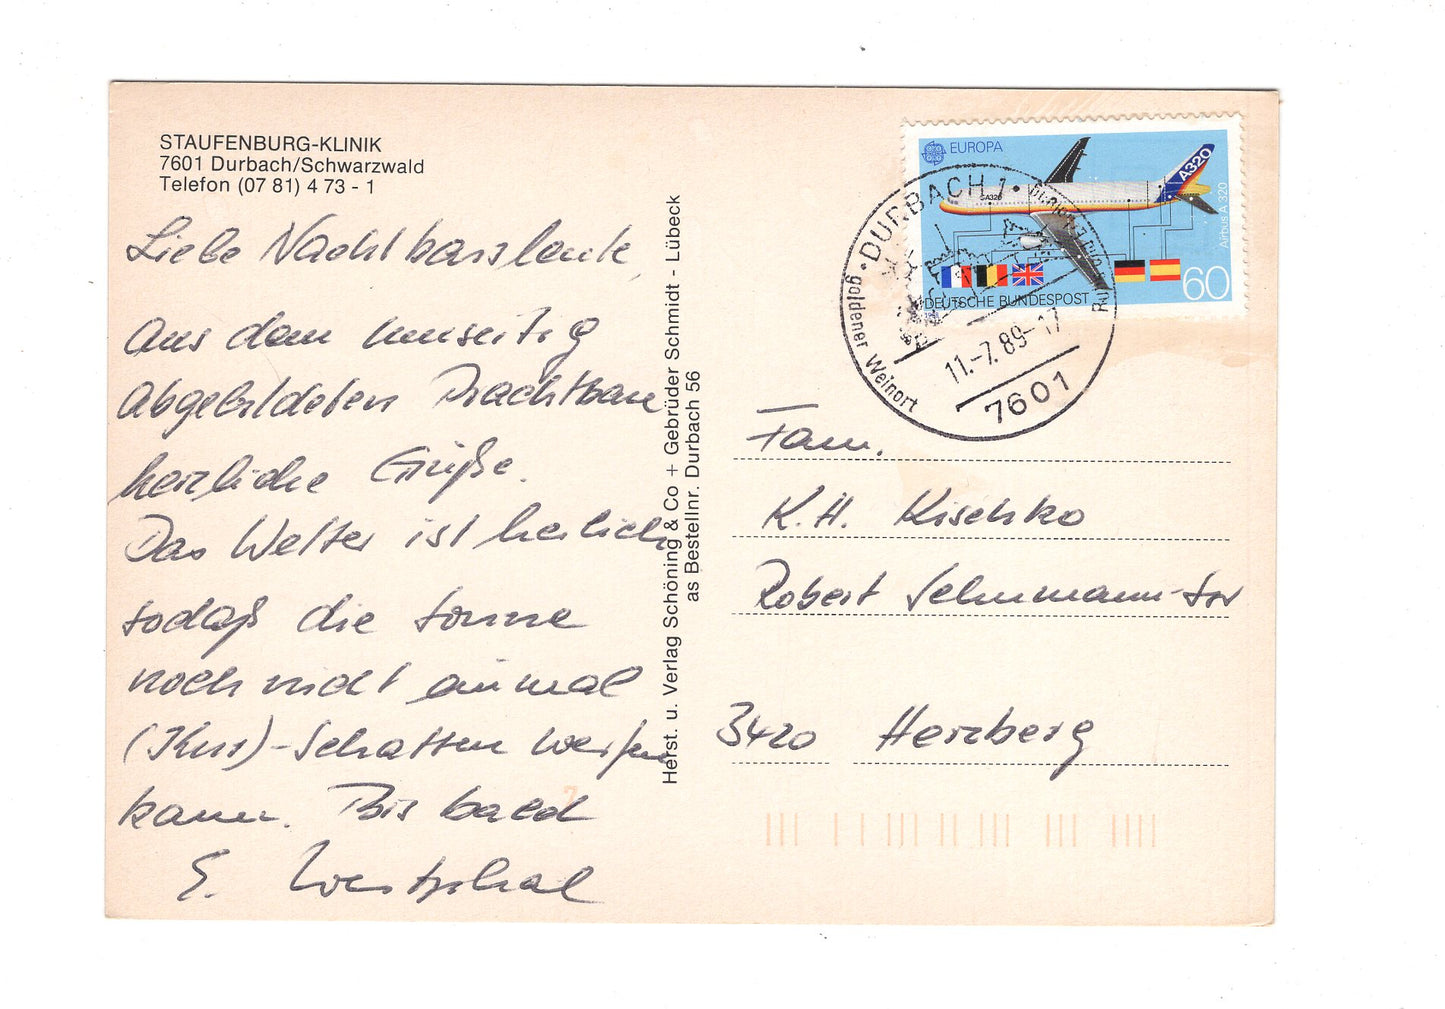 STAUFENBURG-KLINIK
7601 Durbach/Schwarzwald
Telefon (07 81) 4 73 - 1
Liebe Nachtbarsleute,
Aus dem umseitig
abgebildeten Prachtbau
herzliche Grüße.
Das Wetter ist herlich
sodaß die Sonne
noch nicht einmal
(Kur)-Schatten werfen
kann. Bis bald
E. Westphal
Herst. u. Verlag Schöning & Co + Gebrüder Schmidt - Lübeck
as Bestellnr. Durbach 56
EUROPA
A320
A320
Airbus A 320
DEUTSCHE BUNDESPOST
60
DURBACH 1
goldener Weinort
11.-7.89-17
7601
Fam.
K.H. Kischko
Robert Schumann-Str
3420 Herzberg